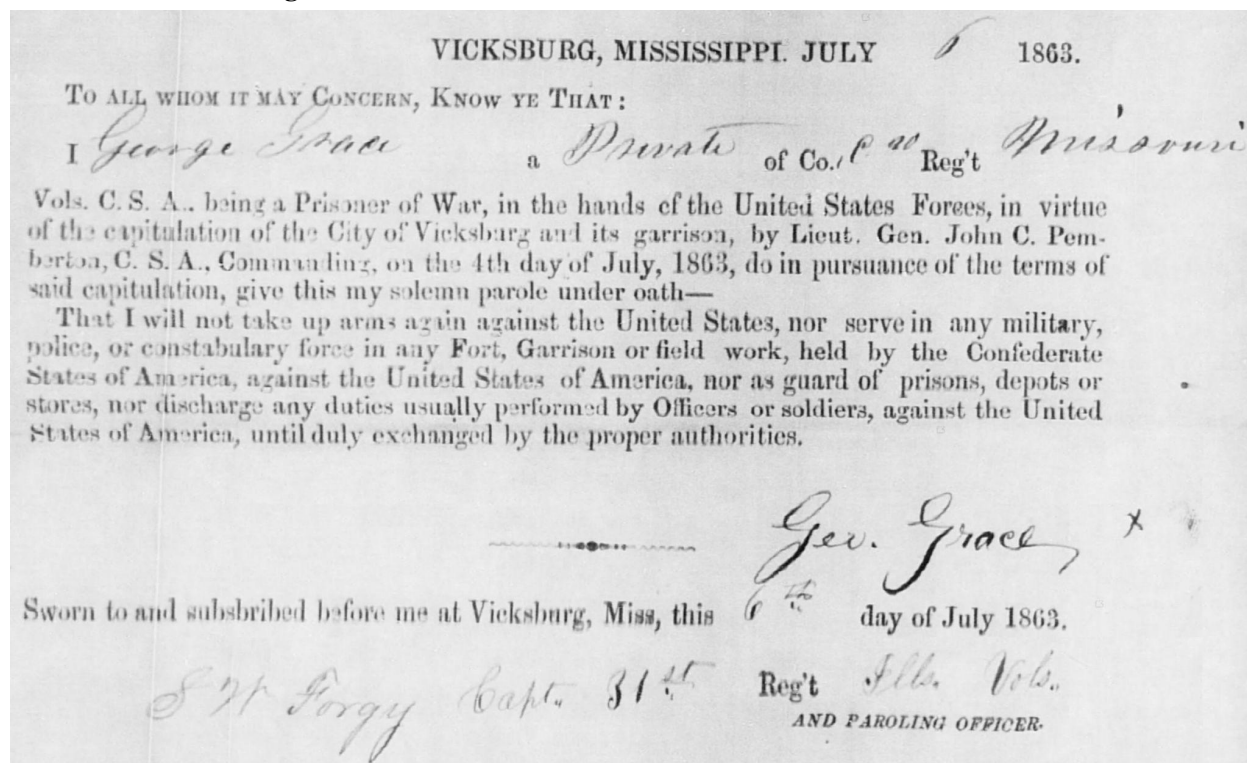 VICKSBURG, MISSISSIPPI. JULY 6 1863.
TO ALL WHOM IT MAY CONCERN, KNOW YE THAT:
I George Grace a Private of Co. Reg't Missouri
Vols. C. S. A.. being a Prisoner of War, in the hands cf the United States Forees, in virtue
of the capitulation of the City of Vicksburg and its garrison, by Lieut. Gen. John C. Pem-
berton, C. S. A., Commanding, on the 4th day of July, 1863, do in pursuance of the terms of
said capitulation, give this my solemn parole under oath—
That I will not take up arms again against the United States, nor serve in any military,
police, or constabulary force in any Fort, Garrison or field work, held by the Confederate
States of America, against the United States of America, nor as guard of prisons, depots or
stores, nor discharge any duties usually performed by Officers or soldiers, against the United
States of America, until duly exchanged by the proper authorities.
Geo. Grace x
Sworn to and subsbribed before me at Vicksburg, Miss, this 6th day of July 1863.
S W Forgy Capt. 31st Reg't Ills. Vols.
AND PAROLING OFFICER.